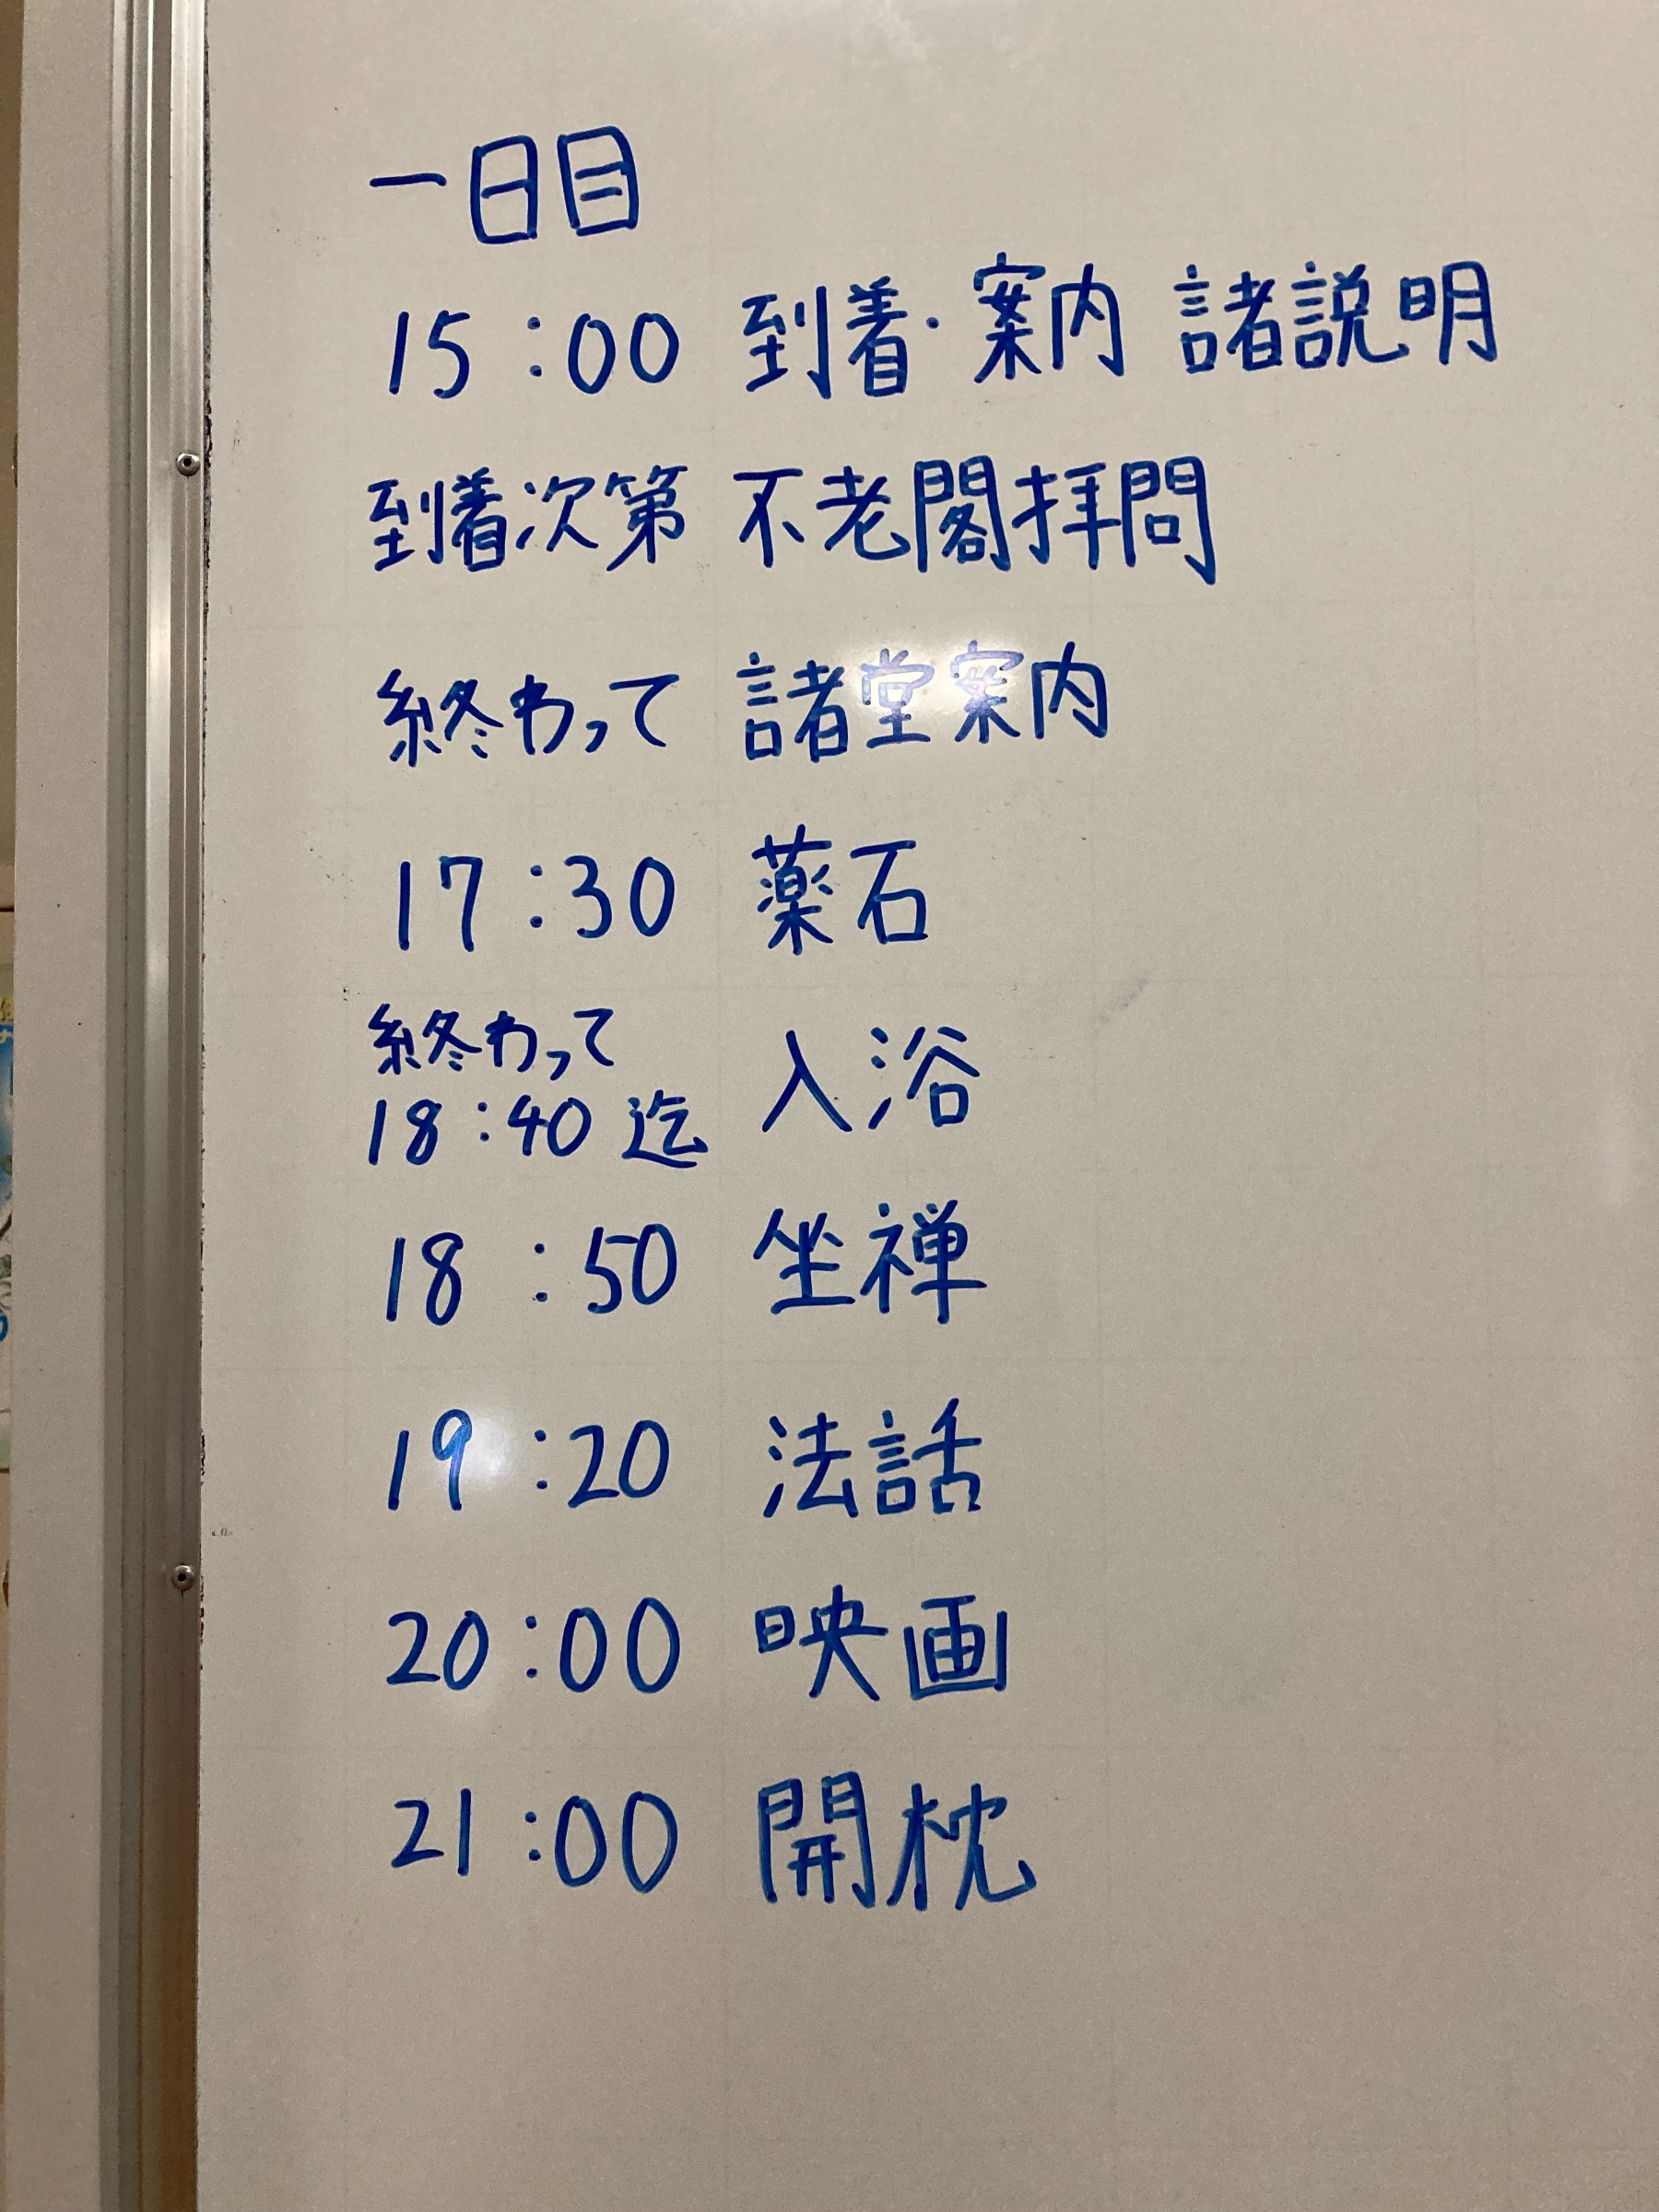 一日目
15:00 到着・案内 諸説明
到着次第 不老閣拝問
終わって 諸堂案内
17:30 薬石
終わって
18:40 迄 入浴
18:50 坐禅
19:20 法話
20:00 映画
21:00 開枕